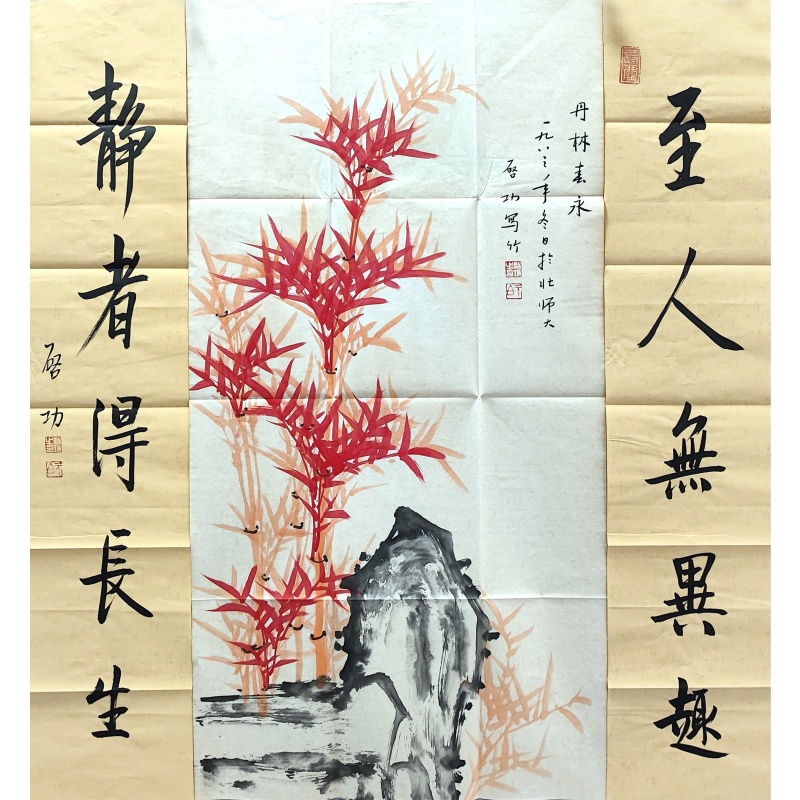 至人無異趣
丹林春永
一九八三年冬日於北師大
啓功写竹
靜者得長生
啓功